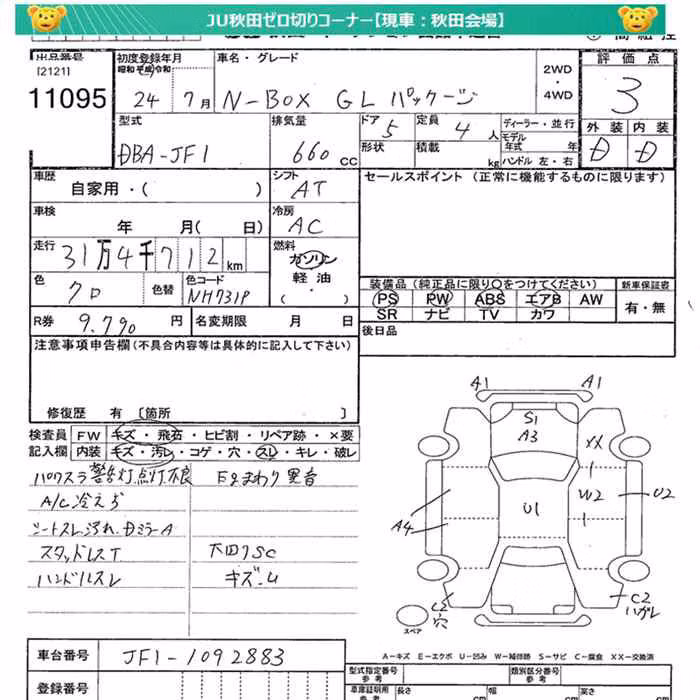 JU秋田ゼロ切りコーナー【現車：秋田会場】
出品番号
[2121]
11095
初度登録年月
昭和 平成 令和
24 7月
車名・グレード
N-BOX GL パッケージ
2WD
・
4WD
評価点
3
外装 内装
D D
型式
DBA-JF1
排気量
660 cc
ドア 5
形状
定員 4 人
積載 kg
ディーラー・並行
モデル年式 年
ハンドル 左・右
車歴
自家用・( )
シフト
AT
セールスポイント (正常に機能するものに限ります)
車検
年 月( 日)
冷房
AC
走行
31万4千712km
燃料
ガソリン
軽油
( ・ )
色
クロ
色替
色コード
NH731P
装備品 (純正品に限り○をつけてください)
新車保証書
PS PW ABS エアB AW
SR ナビ TV カワ
有・無
R券 9.790 円
名変期限 月 日
後日品
注意事項申告欄 (不具合内容等は具体的に記入して下さい)
修復歴 有 [箇所 ]
検査員 記入欄
FW キズ・飛石・ヒビ割・リペア跡・×要
内装 キズ・汚レ・コゲ・穴・スレ・キレ・破レ
パワステ警告灯点灯不良 Egまわり異音
A/C冷えず
シートスレ汚れ.
スタッドレスT
ハンドルスレ キズ・U
A1 A1
S1
A3
XX
W2
U2
U1
A4
C2
穴
C2
ハガレ
スペア
A=キズ E=エクボ U=凹み W=補修跡 S=サビ C=腐食 XX=交換済
車台番号 JF1-1092883
登録番号
型式指定番号
参考
類別区分番号
参考
車庫証明用
参考
長さ cm
幅 cm
高さ cm